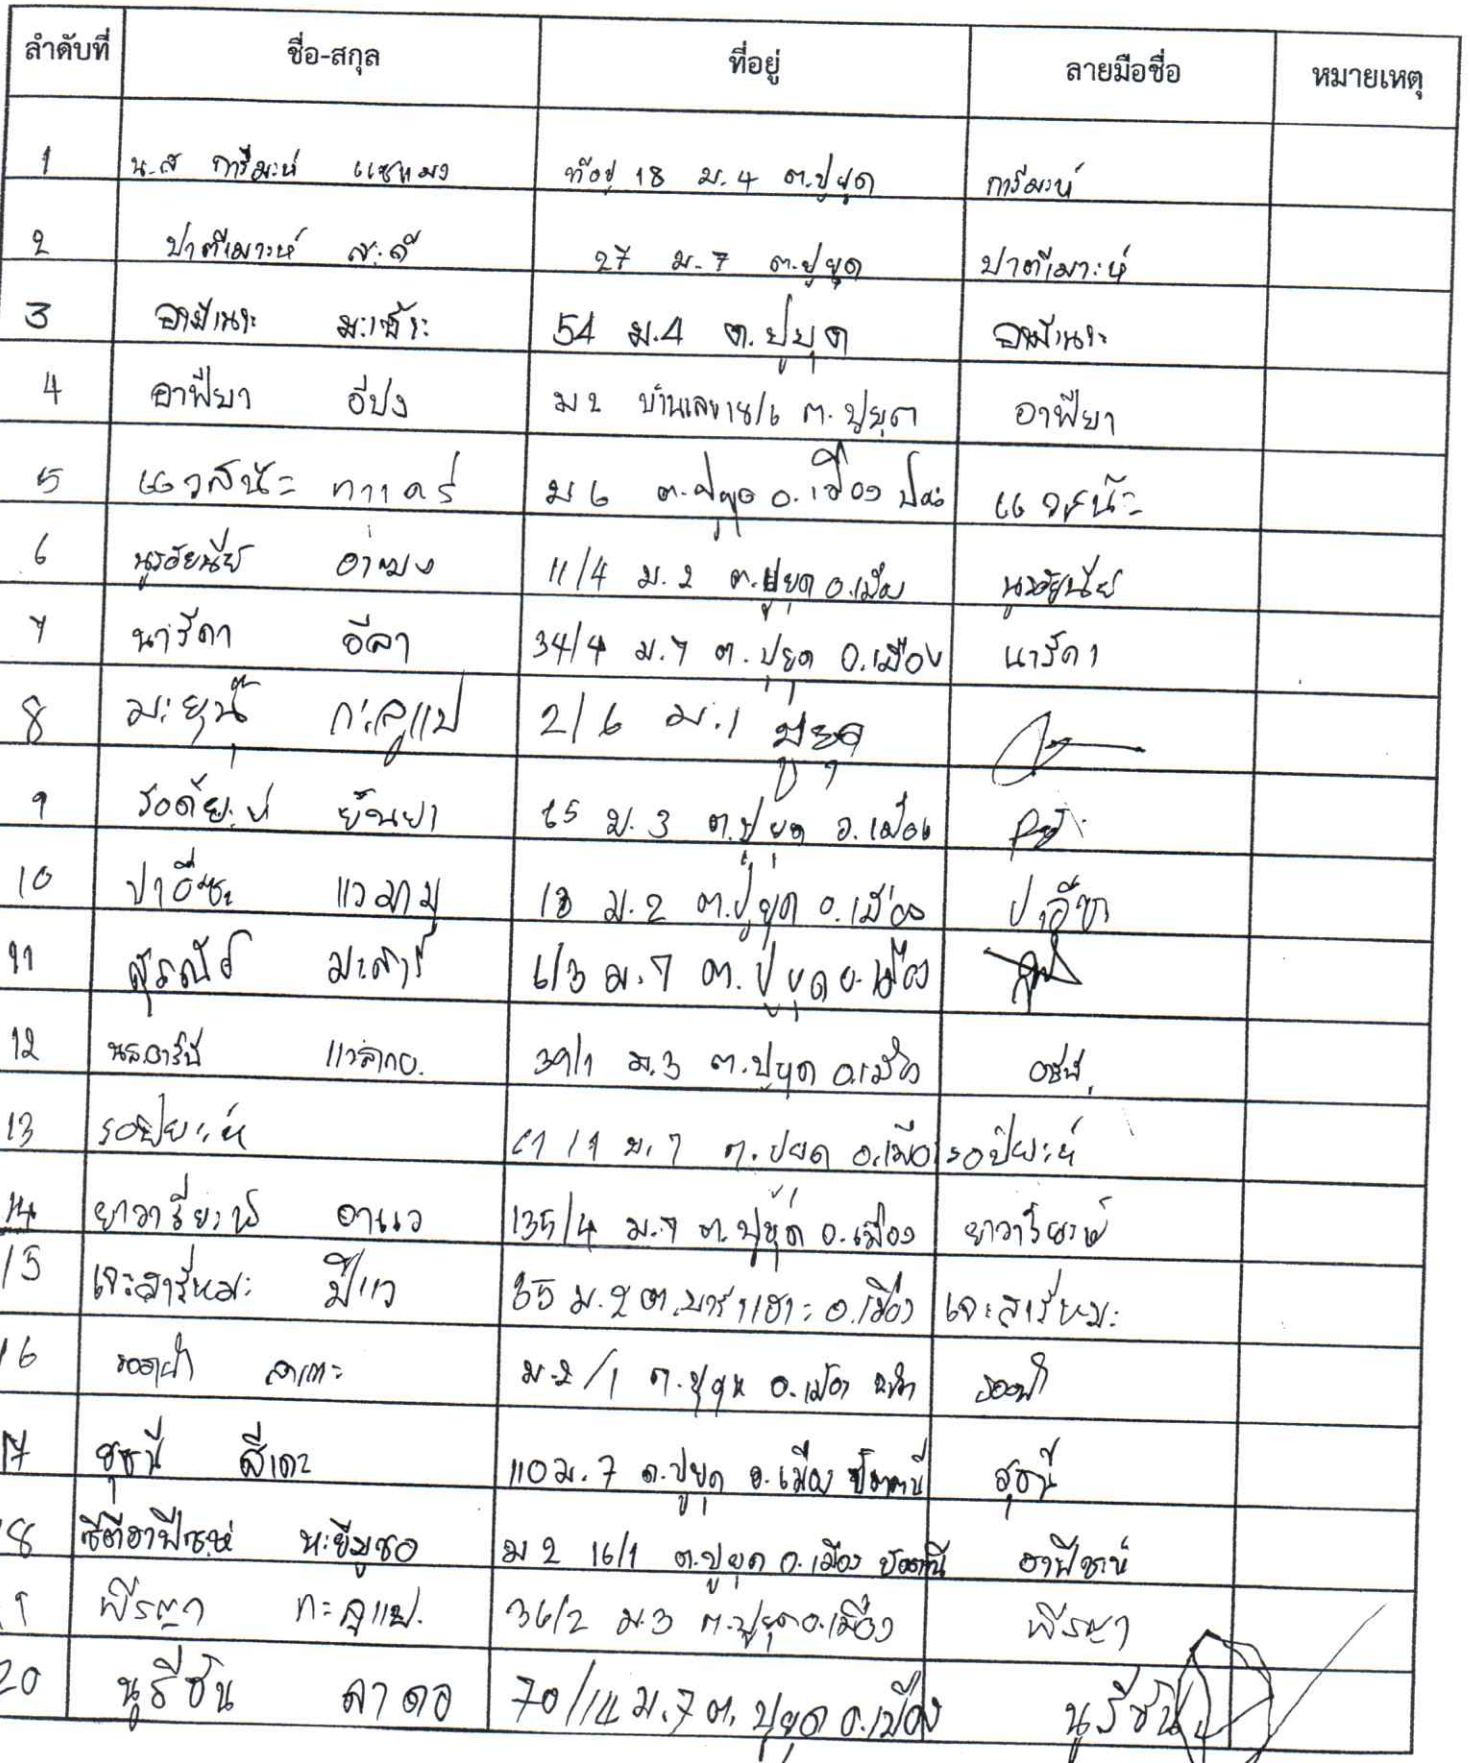 ลำดับที่ ชื่อ-สกุล ที่อยู่ ลายมือชื่อ หมายเหตุ
1 น.ส การีมะห์ แซแมง ที่อยู่ 18 ม.4 ต.ปูยุด การีมะห์
2 ปาตีเมาะห์ สะดี 27 ม.7 ต.ปูยุด ปาตีเมาะห์
3 อามีเนาะ 54 ม.4 ต.ปูยุด อามีเนาะ
4 อาฟียา อีปง ม 2 บ้านเลข 18/6 ต.ปูยุด อาฟียา
5 แวสนะ ม 6 ต.ปูยุด อ.เมือง แวสนะ
6 นูรอัยนีย์ 11/4 ม.2 ต.ปูยุด อ.เมือง นูรอัยนีย์
7 นารีดา อีลา 34/4 ม.7 ต.ปูยุด อ.เมือง นารีดา
8 มะยุนุ๊ กะลูแป 2/6 ม.1 ปูยุด
9 รอดียะห์ ยันยา 65 ม.3 ต.ปูยุด อ.เมือง
10 ปาอีซะ แวมามุ 18 ม.2 ต.ปูยุด อ.เมือง ปาอีซะ
11 มะสาร์ 6/3 ม.7 ต.ปูยุด อ.เมือง
12 39/1 ม.3 ต.ปูยุด อ.เมือง
13 รอปียะห์ ม.7 ต.ปูยุด อ.เมือง รอปียะห์
14 ยาวารียะห์ อาแว 135/4 ม.7 ต.ปูยุด อ.เมือง ยาวารียะห์
15 เจะสารีหมะ มีแว 35 ม.2 ต.บาราเฮาะ อ.เมือง เจะสารีหมะ
16 ม.2/1 อ.เมือง
17 สุซนี สีเดะ 110 ม.7 ต.ปูยุด อ.เมือง ปัตตานี สุซนี
18 ซีตีฮาฟีซะห์ หะยีมูซอ ม 2 16/1 ต.ปูยุด อ.เมือง ปัตตานี ฮาฟีซะห์
พีรญา กะลูแป. 36/2 ม.3 ต.ปูยุด อ.เมือง พีรญา
20 นูรีซัน ลาดอ 70/14 ม.7 ต.ปูยุด อ.เมือง นูรีซัน